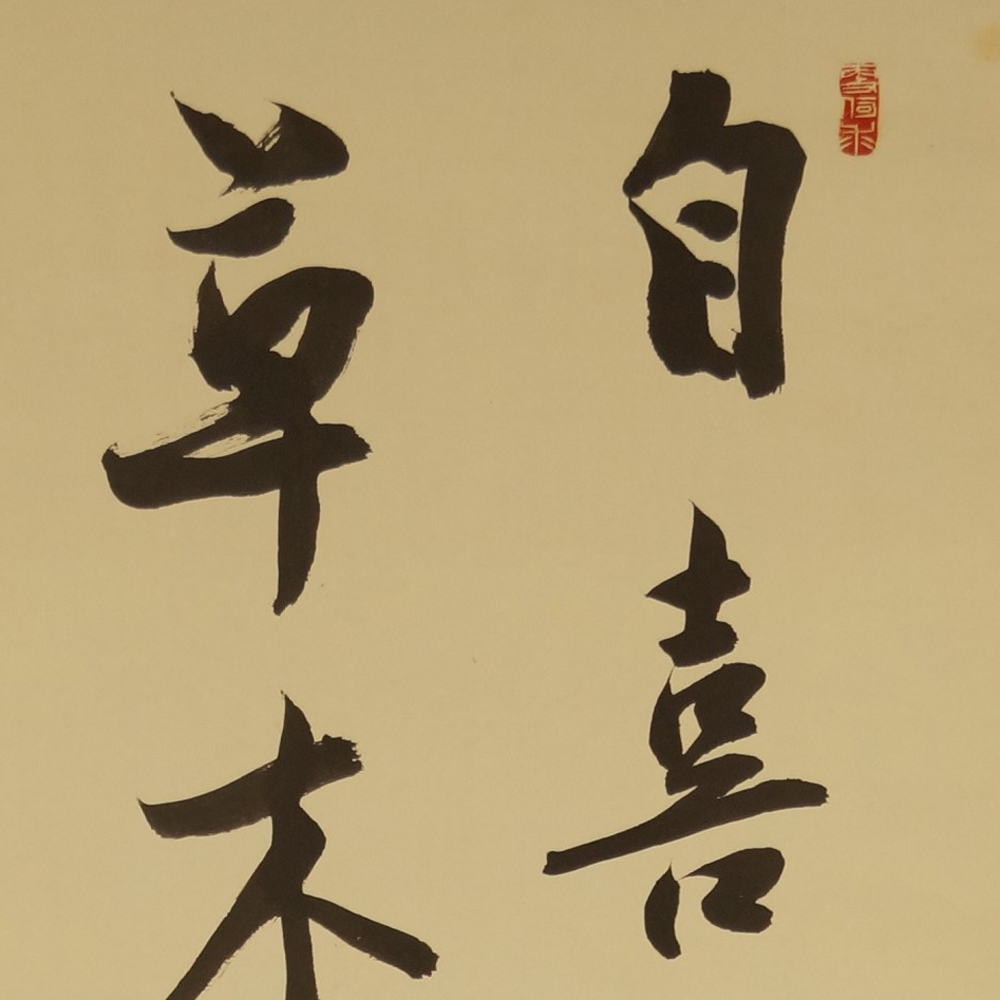 自喜
草木